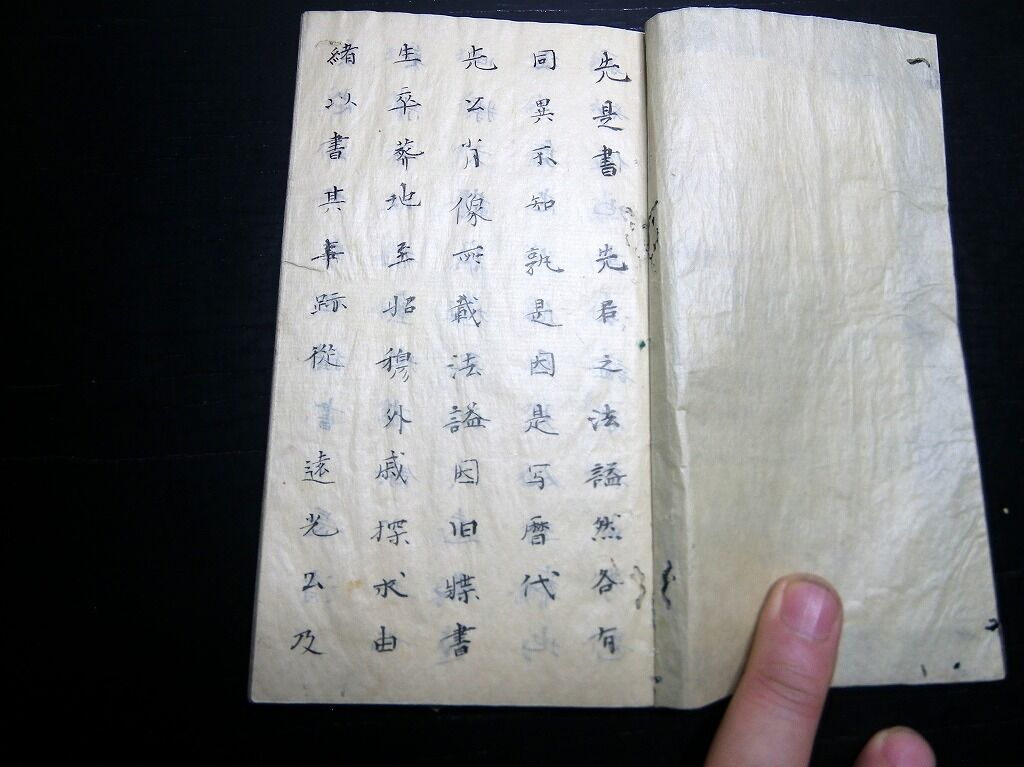 先是書先君之法謚然各有
同異不知孰是因是写暦代
先公肖像所載法謚因旧牒書
生卒葬地至昭穆外戚探求由
緒以書其事跡從遠光公及